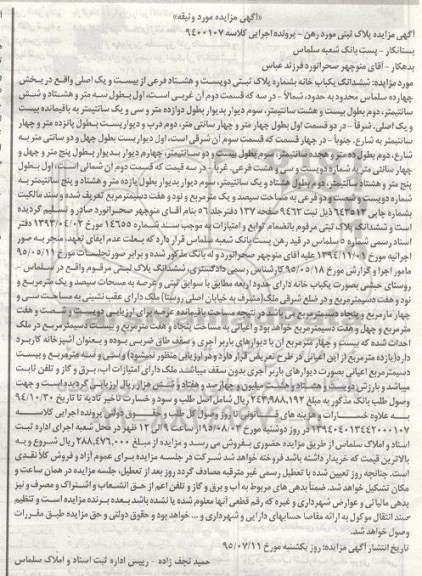 «آگهی مزایده مورد وثیقه»
آگهی مزایده پلاک ثبتی مورد رهن - پرونده اجرایی کلاسه ۹۴۰۰۱۰۷
بستانکار - پست بانک شعبه سلماس
بدهکار - آقای منوچهر صحرانورد فرزند عباس
مورد مزایده: ششدانگ یکباب خانه بشماره پلاک ثبتی دویست و هشتاد فرعی از بیست و یک اصلی واقع در بخش
چهارده سلماس محدود به حدود، شمالاً - در سه که قسمت دوم آن غربی است، اول بطول سه متر و هشتاد و شش
سانتیمتر، دوم بطول بیست و هشت سانتیمتر، سوم دیوار بدیوار بطول دوازده متر و سی و یک سانتیمتر به باقیمانده بیست
و یک اصلی. شرقاً - در دو قسمت اول بطول چهار متر و چهار سانتی متر، دوم درب و دیواریست بطول پانزده متر و چهار
سانتیمتر به شارع، جنوباً - در چهار قسمت که قسمت سوم آن شرقی است، اول دیواریست بطول چهل و دو سانتی متر به
شارع، دوم بطول ده متر و هجده سانتیمتر، سوم بطول بیست و دو سانتیمتر، چهارم دیوار بدیوار بطول پنج متر و چهل و
چهار سانتی متر به شماره دویست و سی و هشت فرعی. غرباً - در سه قسمت که قسمت دوم آن شمالی است، اول بطول
پنج متر و هشتاد سانتیمتر، دوم بطول هشتاد و یک سانتیمتر، سوم دیوار بدیوار بطول یازده متر و هشتاد و پنج سانتیمتر به
شماره دویست و شصت و دو فرعی به مساحت سیصد و یک مترمربع و نود و هفت دسیمترمربع تعریف شده و سند مالکیت
بشماره چاپی ۶۴۳۵۱۳ ذیل ثبت ۹۴۶۳ صفحه ۱۳۷ دفتر جلد ۵۶ بنام آقای منوچهر صحرانورد صادر و تسلیم گردیده
است و ششدانگ پلاک ثبتی مرقوم بانضمام توابع و امتیازات به موجب سند شماره ۱۴۶۵۵ مورخ ۱۳۹۳/۰۴/۰۲ دفتر
اسناد رسمی شماره ۵ سلماس در قید رهن پست بانک شعبه سلماس قرار دارد که بعلت عدم ایفای تعهد منجر به صور
اجرائیه مورخ ۱۳۹۴/۱۱/۰۱ علیه آقای منوچهر صحرانورد و له بانک مذکور شده و برابر صورتجلسات مورخ ۹۵/۰۵/۱۱
مامور اجرا و گزارش مورخ ۹۵/۰۵/۱۸ کارشناس رسمی دادگستری، ششدانگ پلاک ثبتی مرقوم واقع در سلماس -
روستای خشی بصورت یکباب خانه دارای حدود اربعه مطابق با سوابق ثبتی و عرصه به مساحت سیصد و یک مترمربع و
نود و هفت دسیمترمربع و در ضلع شرقی ملک (مشرف به خیابان اصلی روستا) ملک دارای عقب نشینی به مساحت سی و
چهار مترمربع و پنجاه دسیمترمربع می باشد در نتیجه مساحت باقیمانده عرصه برای ارزیابی دویست و شصت و هفت
مترمربع و چهل و هفت دسیمترمربع خواهد بود و اعیانی به مساحت پنجاه و هفت مترمربع و بیست دسیمترمربع در ملک
احداث شده که بیست و چهار مترمربع آن با دیوارهای باربر آجری و سقف طاق ضربی بوده و بعنوان آشپزخانه کاربرد
دارد (یازده مترمربع از این اعیانی در طرح تعریض قرار دارد و در ارزیابی منظور نمیشود) و سی و سه مترمربع و بیست
دسیمترمربع اعیانی بصورت دیوارهای باربر آجری بدون سقف میباشد، ملک دارای امتیازات آب، برق و گاز و تلفن ثابت
میباشد و بارزش دویست و هشتاد و هشت میلیون و چهارصد و هفتاد و شش هزار ریال ارزیابی گردیده است و جهت
وصول طلب بانک مذکور به مبلغ ۲۴۳,۹۸۸,۱۹۲ ریال شامل اصل طلب و سود و خسارت تاخیر تادیه تا تاریخ ۹۴/۱۰/۳۰
به علاوه خسارات و هزینه های قانونی تا روز وصول کل طلب و حقوق دولتی پرونده اجرایی کلاسه
۱۳۹۴۰۴۰۱۳۴۴۲۰۰۰۱۰۷ در روز دوشنبه مورخ ۹۵/۰۸/۰۳ از ساعت ۹ الی ۱۲ ظهر در محل شعبه اجرای اداره ثبت
اسناد و املاک سلماس از طریق مزایده حضوری بفروش می رسد و مزایده از مبلغ ۲۸۸,۴۷۶,۰۰۰ ریال شروع و به
بالاترین قیمت که خریدار داشته باشد فروخته خواهد شد شرکت در جلسه مزایده برای عموم آزاد و فروش کلاً نقدی
است. چنانچه روز تعیین شده با تعطیل رسمی غیر مترقبه مصادف گردد روز بعد از تعطیل، جلسه مزایده در همان ساعت و
مکان تشکیل خواهد شد. ضمناً بدهی های مربوط به آب و برق و گاز و تلفن اعم از حق انشعاب و اشتراک و مصرف و نیز
بدهی مالیاتی و عوارض شهرداری و غیره که رقم قطعی آنها معلوم شده یا نشده باشد بعهده برنده مزایده است و تنظیم
سند انتقال موکول به ارائه مفاصا حسابهای دارایی و شهرداری و ... خواهد بود و حقوق دولتی و حق مزایده طبق مقررات
وصول خواهد شد.
تاریخ انتشار آگهی مزایده: روز یکشنبه مورخ ۹۵/۰۷/۱۱
حمید نجف زاده - رییس اداره ثبت اسناد و املاک سلماس